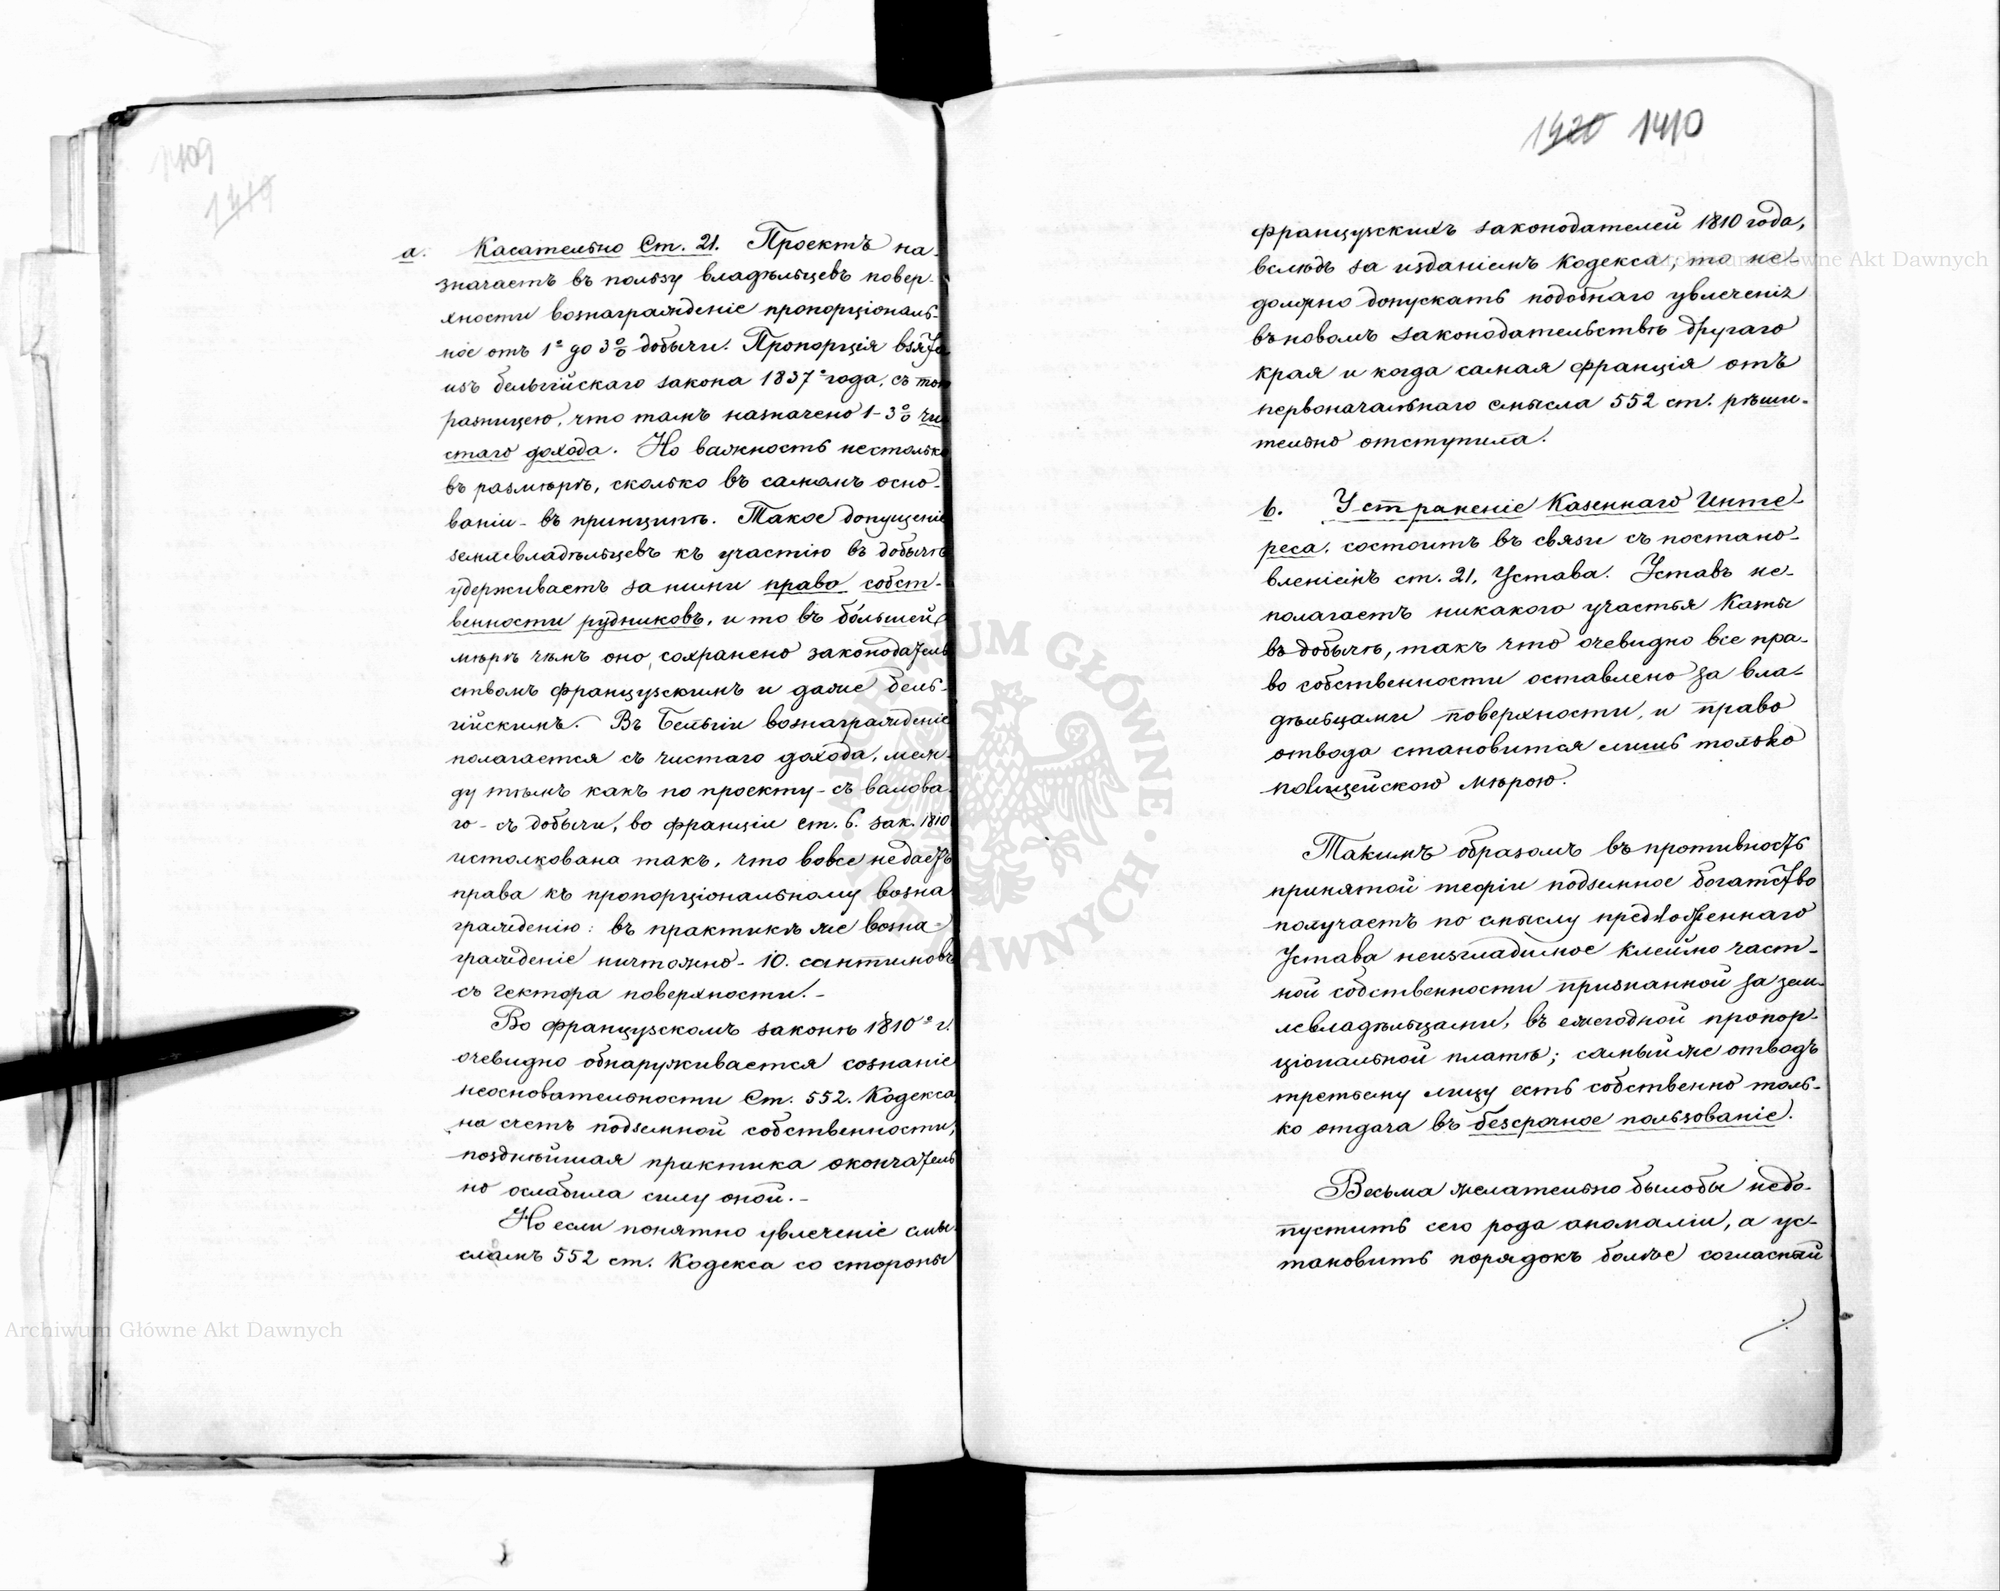 1409
1419
a. Касательно Ст. 21. Проектъ на-
значаетъ въ пользу владѣльцевъ повер-
хности вознагражденіе пропорціональ-
ное отъ 1° до 3% добычи. Пропорція взята
изъ бельгійскаго закона 1837° года, съ тою
разницею, что тамъ назначено 1-3% чи
стаго дохода. Но важность нестолько
въ размѣрѣ, сколько въ самомъ осно-
ваніи - въ принципѣ. Такое допущеніе
землевладѣльцевъ къ участію въ добычѣ
удерживаетъ за ними право собст-
венности рудниковъ, и то въ бо́льшей
мѣрѣ чѣмъ оно сохранено законодатель
ствомъ французскимъ и даже бель-
гійскимъ. Въ Бельгіи вознагражденіе
полагается съ чистаго дохода, меж-
ду тѣмъ какъ по проекту - съ валова-
го - съ добычи, во франціи ст. 6. зак. 1810
истолкована такъ, что вовсе недаетъ
права къ пропорціональному возна
гражденію: въ практикѣ же возна-
гражденіе ничтожно - 10. сантимовъ
съ гектора поверхности. -
Во французскомъ законѣ 1810° г.
очевидно обнаруживается сознаніе
неосновательности Ст. 552. Кодекса
на счетъ подземной собственности,
позднѣйшая практика окончатель
но ослабила силу оной. -
Но если понятно увлеченіе смы
сломъ 552 ст. Кодекса со стороны
1420 1410
французскихъ законодателей 1810 года,
вслѣдъ за изданіемъ Кодекса, то не-
должно допускать подобнаго увлеченія
въ новомъ законодательствѣ другаго
края и когда самая франція отъ
первоначальнаго смысла 552 ст. рѣши-
тельно отступила.
b. Устраненіе Казеннаго Инте-
реса, состоитъ въ связи съ постано-
вленіемъ ст. 21, Устава. Уставъ не-
полагаетъ никакого участья Казны
въ добычѣ, такъ что очевидно все пра-
во собственности оставлено за вла-
дѣльцами поверхности, и право
отвода становится лишь только
полицейскою мѣрою.
Такимъ образомъ въ противность
принятой теоріи подземное богатство
получаетъ по смыслу предложеннаго
Устава неизгладимое клеймо част-
ной собственности признанной за зем-
левладѣльцами, въ ежегодной пропор-
ціональной платѣ; самый же отводъ
третьему лицу есть собственно толь-
ко отдача въ безсрочное пользованіе.
Весьма желательно было бы недо-
пустить сего рода аномаліи, а ус-
тановить порядокъ болѣе согласный
Archiwum Główne Akt Dawnych
Archiwum Główne Akt Dawnych
ARCHIWUM GŁÓWNE AKT DAWNYCH